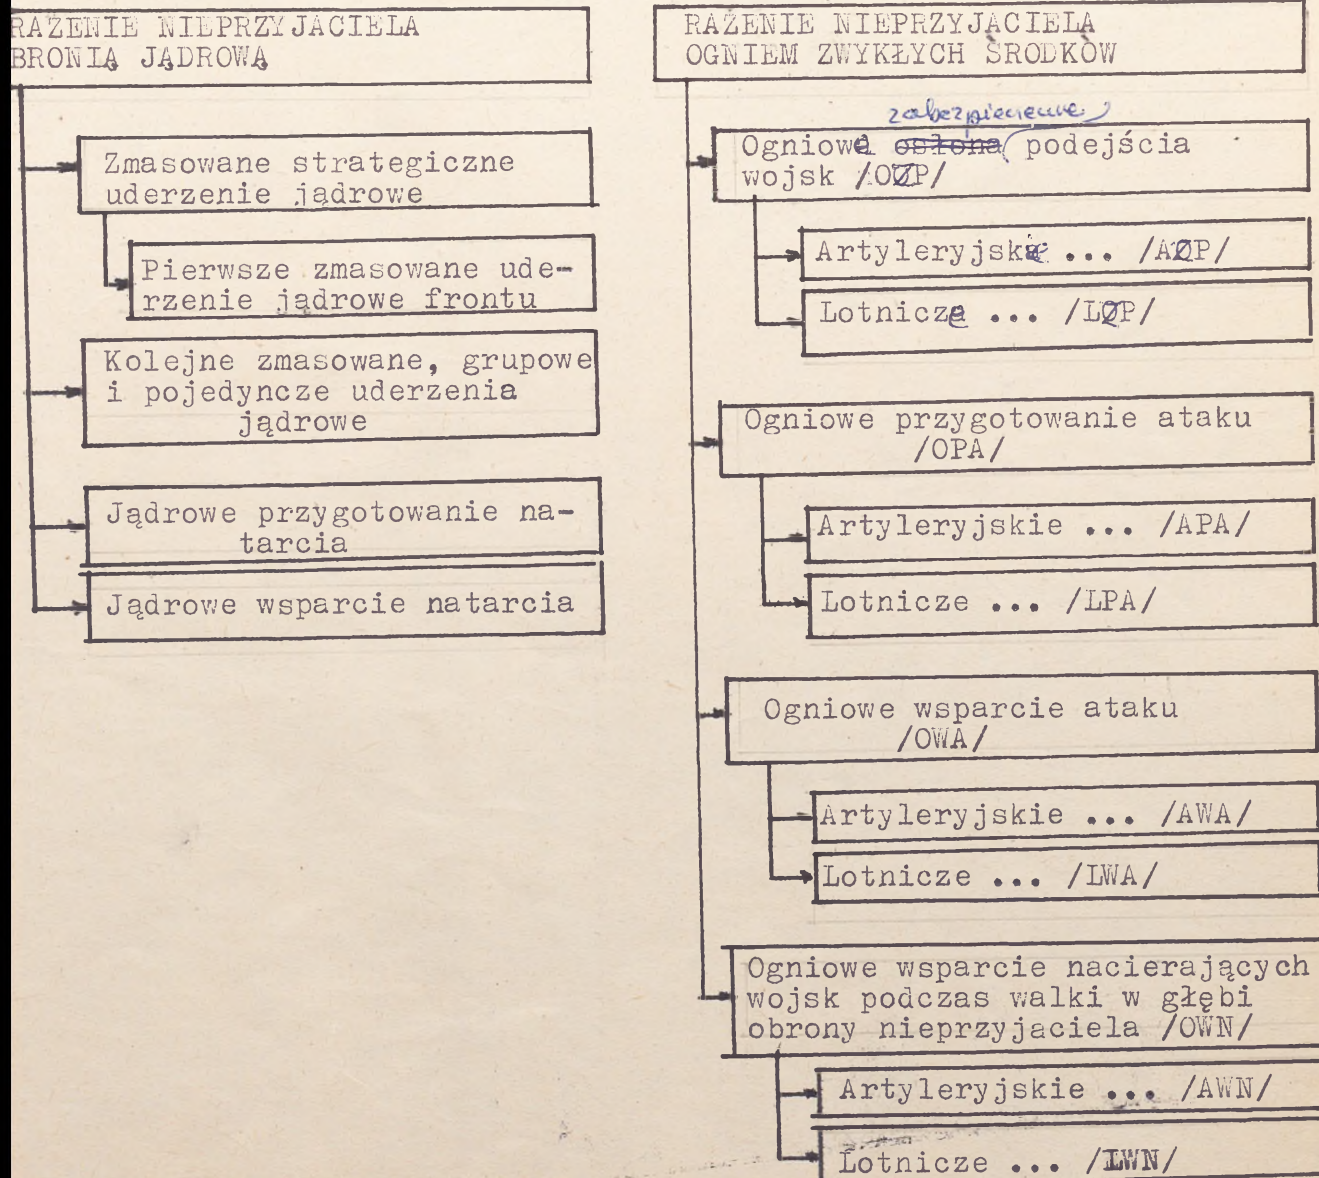 RAŻENIE NIEPRZYJACIELA
BRONIĄ JĄDROWĄ
Zmasowane strategiczne
uderzenie jądrowe
Pierwsze zmasowane ude-
rzenie jądrowe frontu
Kolejne zmasowane, grupowe
i pojedyncze uderzenia
jądrowe
Jądrowe przygotowanie na-
tarcia
Jądrowe wsparcie natarcia
RAŻENIE NIEPRZYJACIELA
OGNIEM ZWYKŁYCH ŚRODKÓW
zabezpieczenie
Ogniowe osłona podejścia
wojsk /OZP/
Artyleryjskie ... /AZP/
Lotnicze ... /LZP/
Ogniowe przygotowanie ataku
/OPA/
Artyleryjskie ... /APA/
Lotnicze ... /LPA/
Ogniowe wsparcie ataku
/OWA/
Artyleryjskie ... /AWA/
Lotnicze ... /LWA/
Ogniowe wsparcie nacierających
wojsk podczas walki w głębi
obrony nieprzyjaciela /OWN/
Artyleryjskie ... /AWN/
Lotnicze ... /LWN/